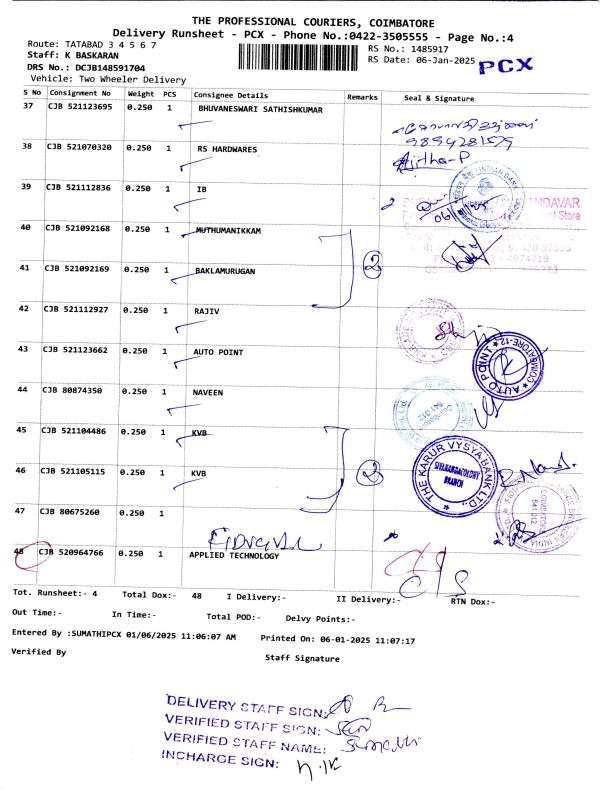 THE PROFESSIONAL COURIERS, COIMBATORE
Delivery Runsheet - PCX - Phone No.:0422-3505555 - Page No.:4
Route: TATABAD 3 4 5 6 7
RS No.: 1485917
Staff: K BASKARAN
RS Date: 06-Jan-2025
PCX
DRS No.: DCJB148591704
Vehicle: Two Wheeler Delivery
S No Consignment No Weight PCS Consignee Details Remarks Seal & Signature
37 CJB 521123695 0.250 1 BHUVANESWARI SATHISHKUMAR
9894281579
38 CJB 521070320 0.250 1 RS HARDWARES
39 CJB 521112836 0.250 1 IB
40 CJB 521092168 0.250 1 MUTHUMANIKKAM
2
41 CJB 521092169 0.250 1 BAKLAMURUGAN
42 CJB 521112927 0.250 1 RAJIV
43 CJB 521123662 0.250 1 AUTO POINT
AUTO POINT ★ COIMBATORE-12 ★
44 CJB 80874350 0.250 1 NAVEEN
Coimbatore
641 012
45 CJB 521104486 0.250 1 KVB
2
THE KARUR VYSYA BANK LTD.,
SIVANANDACOLONY
BRANCH
46 CJB 521105115 0.250 1 KVB
47 CJB 80675260 0.250 1
COIMBATORE
641 012
48 CJB 520964766 0.250 1 APPLIED TECHNOLOGY
Tot. Runsheet:- 4 Total Dox:- 48 I Delivery:- II Delivery:- RTN Dox:-
Out Time:- In Time:- Total POD:- Delvy Points:-
Entered By :SUMATHIPCX 01/06/2025 11:06:07 AM Printed On: 06-01-2025 11:07:17
Verified By Staff Signature
DELIVERY STAFF SIGN:
VERIFIED STAFF SIGN:
VERIFIED STAFF NAME: Sumathi
INCHARGE SIGN: